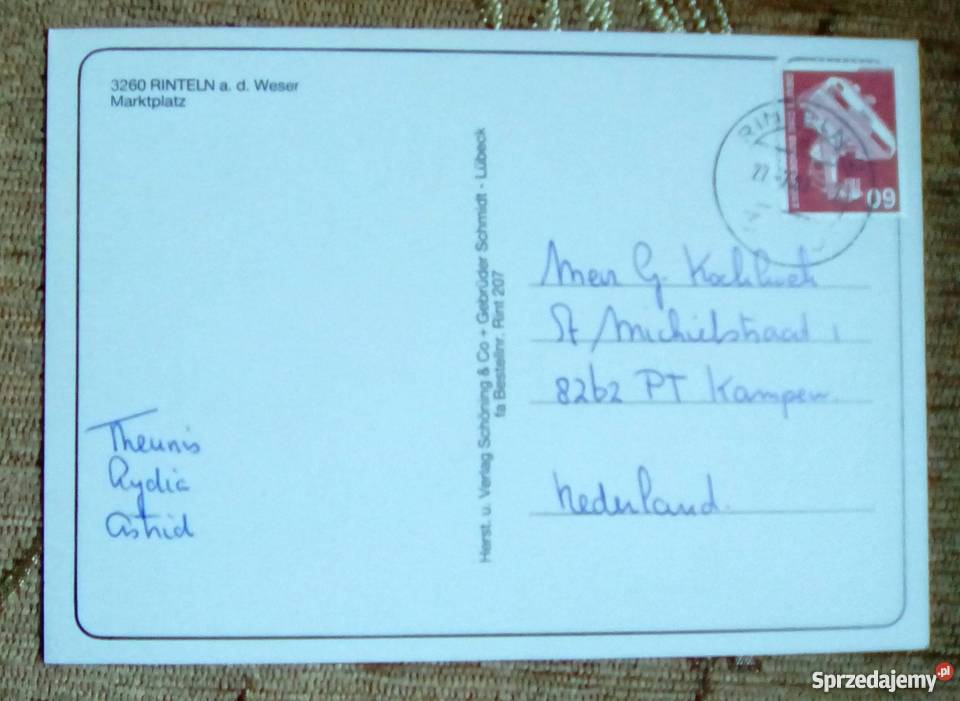 3260 RINTELN a. d. Weser
Marktplatz
Herst. u. Verlag Schöning & Co + Gebrüder Schmidt - Lübeck
fa Bestellnr. Rint 207
RINTELN
60
G.
St Michielstraat 1
8262 PT Kampen
Nederland.
Theunis
Lydia
Astrid
Sprzedajemy.pl